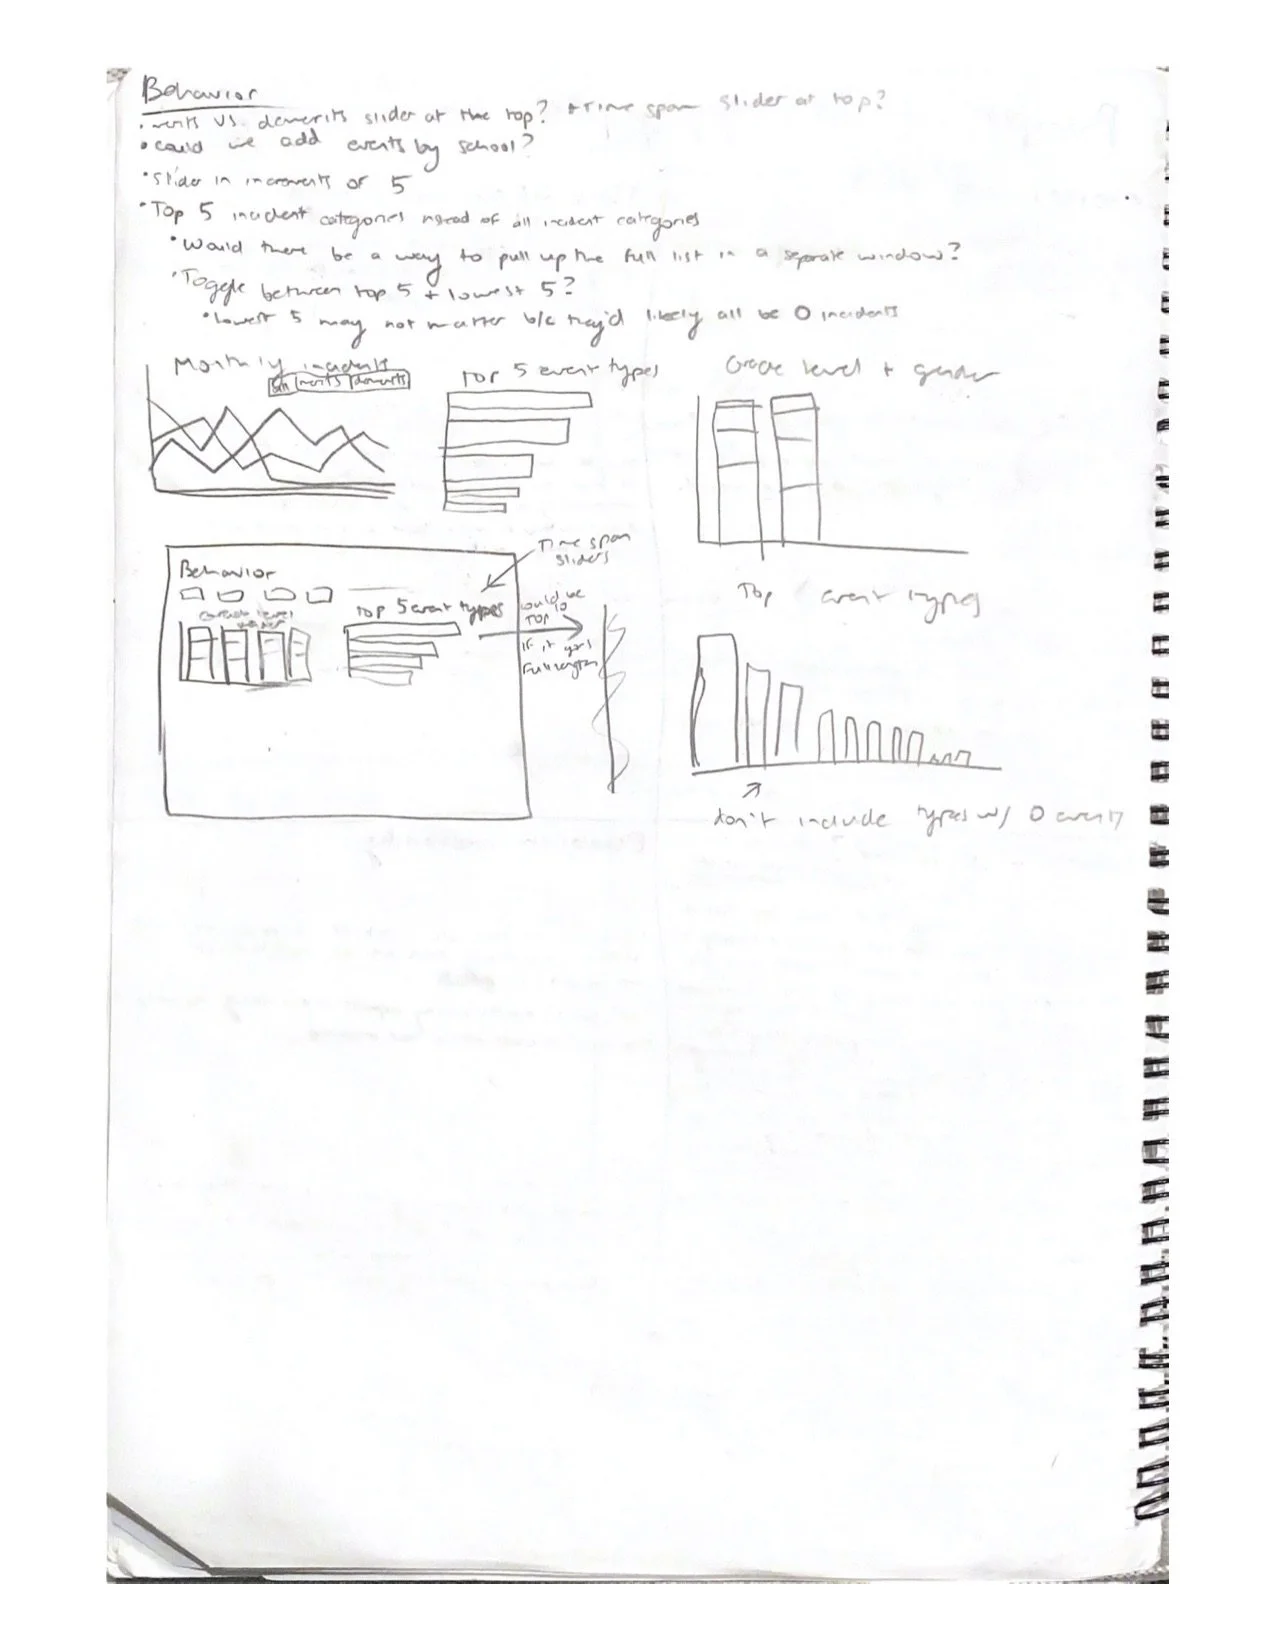 Behavior
• merits vs. demerits slider at the top? + Time span slider at top?
• could we add events by school?
• Slider in increments of 5
• Top 5 incident categories instead of all incident categories
• Would there be a way to pull up the full list in a separate window?
• Toggle between top 5 + lowest 5?
• Lowest 5 may not matter b/c they'd likely all be 0 incidents
Monthly incidents
merits demerits
Top 5 event types
Grade level + gender
Time span sliders
Behavior
Grade level
Top 5 event types
would be
TOP
if it goes
full length
Top event types
don't include types w/ 0 events